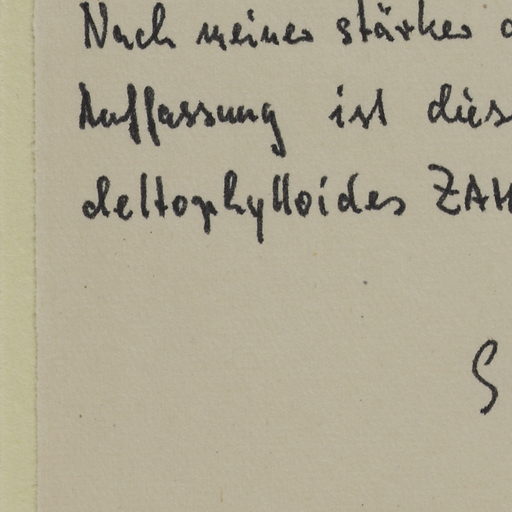 Nach meiner stärker
Auffassung ist dies
deltophylloides ZAH
S